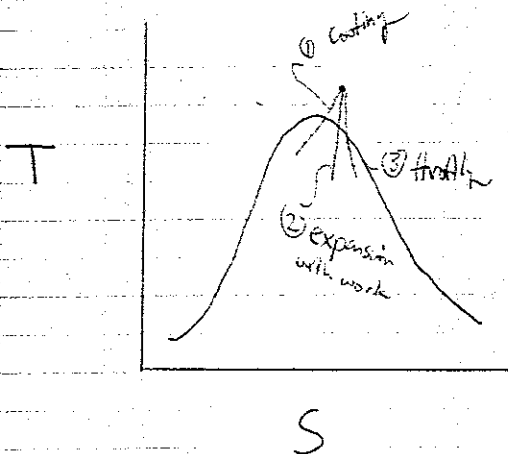 ① Cooling
T
③ Throttle
② expansion
with work
S